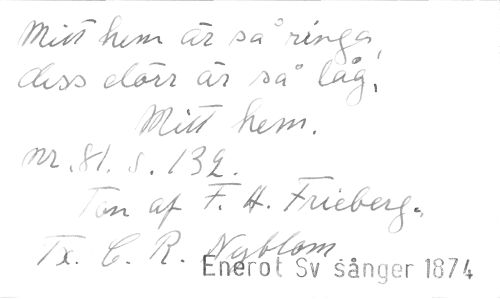 Mitt hem är så ringa,
dess dörr är så låg,
Mitt hem.
nr. 81. s. 132.
Ton af F. H. Frieberg.
Tx. C. R. Nyblom.
Enerot Sv sånger 1874